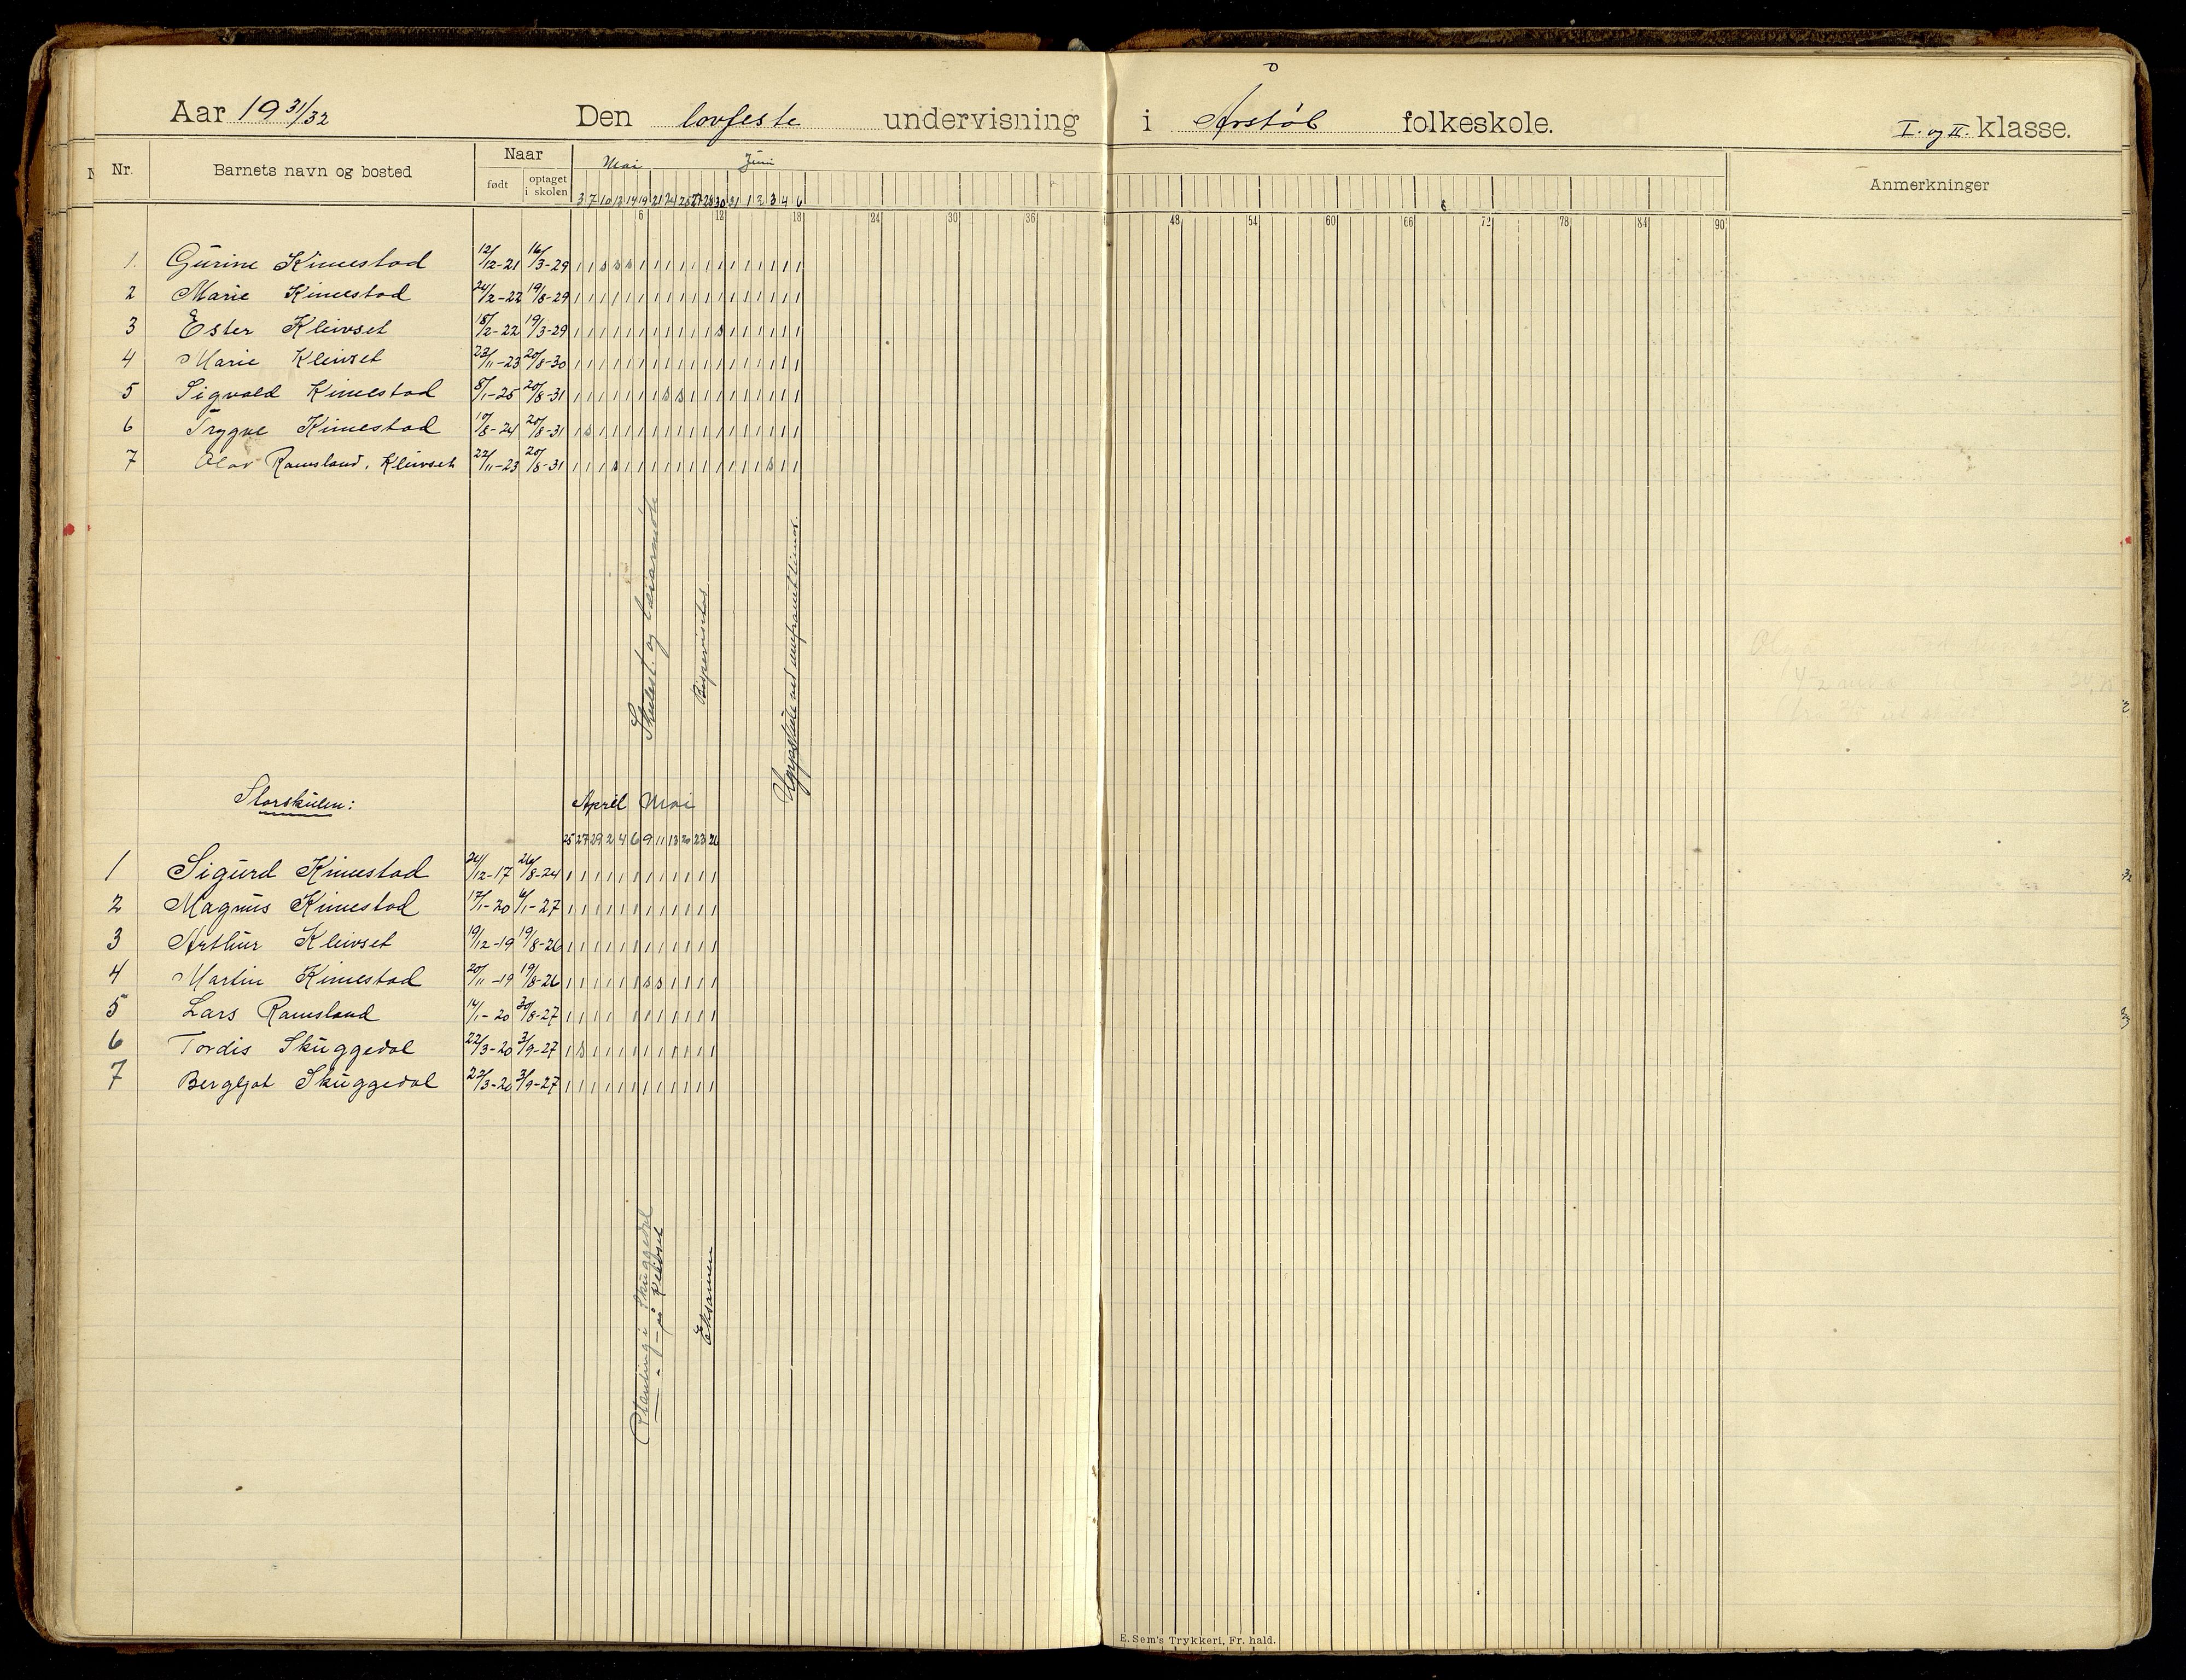 Aar 19 31/32 Den lovfeste undervisning i Årstøl folkeskole. I. og II. klasse.
Nr. Barnets navn og bosted Naar født optaget i skolen Mai Juni Anmerkninger
6 12 18 24 30 36 48 54 60 66 72 78 84 90
1. Gurine Kimestad 12/12-21 16/3-29
2 Marie Kimestad 24/2-22 19/8-29
3 Ester Kleivset 18/2-22 19/3-29
4 Marie Kleivset 23/11-23 20/8-30
5 Sigvald Kimestad 8/1-25 20/8-31
6 Trygve Kimestad 10/8-24 20/8-31
7 Olav Ramsland, Kleivset 22/11-23 20/8-31
Skulest. og lærarmøte
Bispevisitas
Storskulen: April Mai
25 27 29 2 4 6 9 11 13 20 23 26
1 Sigurd Kimestad 24/12-17 26/8-24
2 Magnus Kimestad 17/1-20 6/1-27
3 Arthur Kleivset 19/12-19 19/8-26
4 Martin Kimestad 20/11-19 19/8-26
5 Lars Ramsland 14/1-20 30/8-27
6 Tordis Skuggedal 22/3-20 3/9-27
7 Bergljot Skuggedal 22/3-20 3/9-27
Planting i Skuggedal
—"— på Kleivset
Eksamen
E. Sem's Trykkeri, Fr. hald.